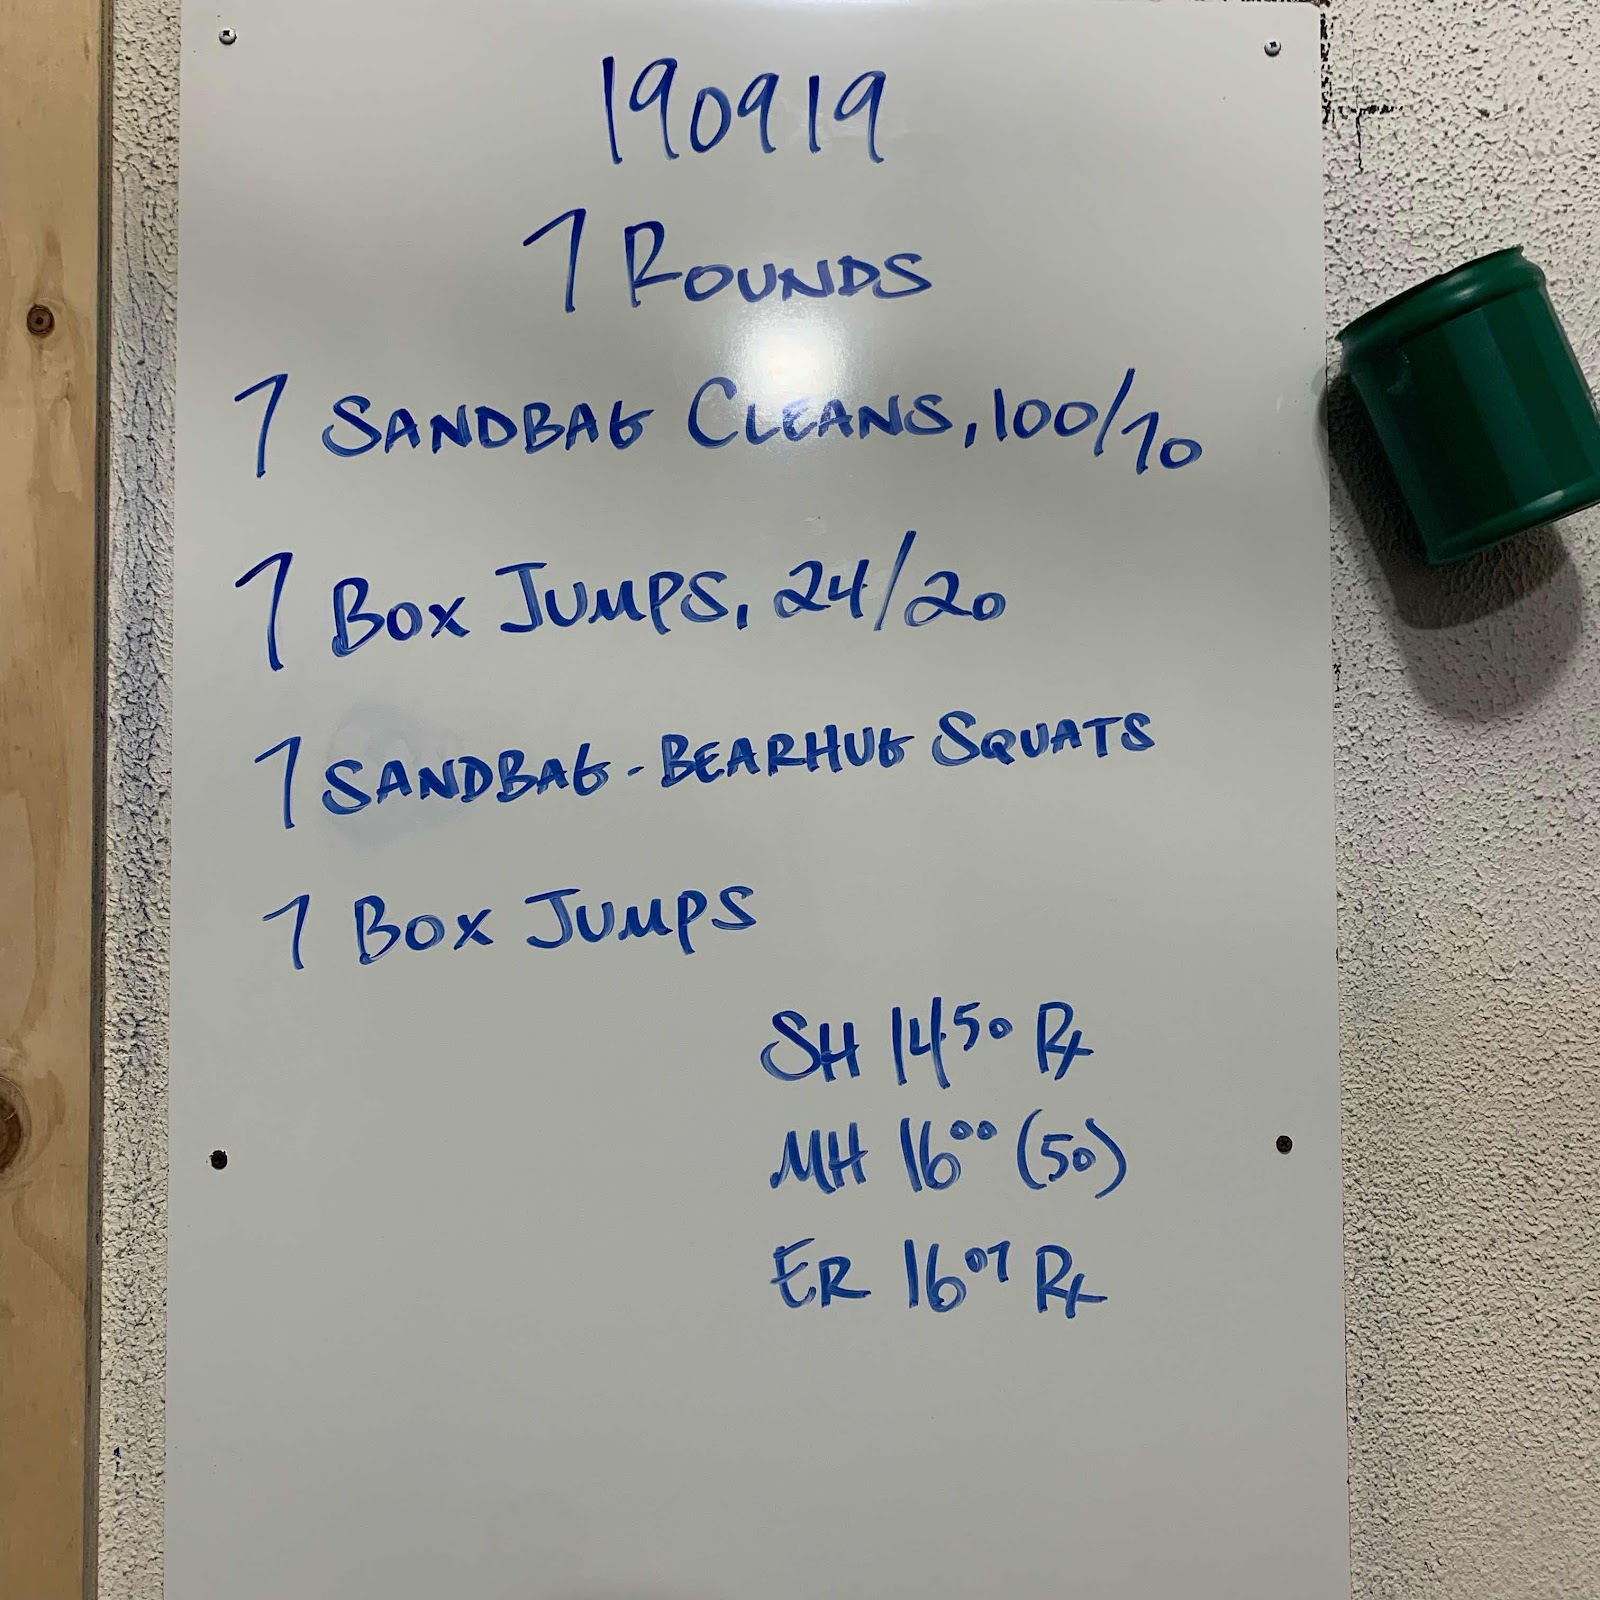 190919
7 ROUNDS
7 SANDBAG CLEANS, 100/70
7 BOX JUMPS, 24/20
7 SANDBAG-BEARHUG SQUATS
7 BOX JUMPS
SH 14⁵⁰ Rx
MH 16⁰⁰ (50)
ER 16⁰⁷ Rx